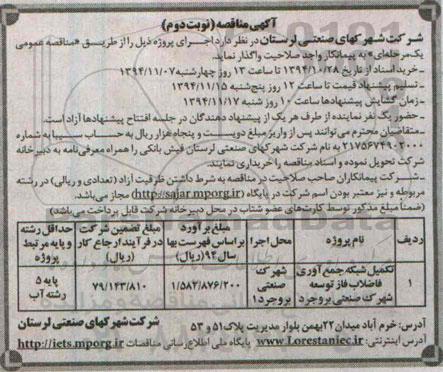 آگهی مناقصه (نوبت دوم)
شرکت شهرکهای صنعتی لرستان در نظر دارد اجرای پروژه ذیل را از طریق «مناقصه عمومی
یک مرحله‌ای» به پیمانکار واجد صلاحیت واگذار نماید.
- خرید اسناد از تاریخ ۱۳۹۴/۱۰/۲۸ تا ساعت ۱۳ روز چهارشنبه ۱۳۹۴/۱۱/۰۷
- تسلیم پیشنهاد قیمت تا ساعت ۱۲ روز پنج‌شنبه ۱۳۹۴/۱۱/۱۵
- زمان گشایش پیشنهادها ساعت ۱۰ روز شنبه ۱۳۹۴/۱۱/۱۷
- حضور یک نفر نماینده از طرف هر یک از پیشنهاد دهندگان در جلسه افتتاح پیشنهادها آزاد است.
- متقاضیان محترم می‌توانند پس از واریز مبلغ دویست و پنجاه هزار ریال به حساب سیبا به شماره
۲۱۷۵۶۷۴۹۰۲۰۰۰ به نام شرکت شهرکهای صنعتی لرستان فیش بانکی را همراه معرفی‌نامه به دبیرخانه
شرکت تحویل نموده و اسناد مناقصه را خریداری نمایند.
- شرکت پیمانکاران صاحب صلاحیت در مناقصه به شرط داشتن ظرفیت آزاد (تعدادی و ریالی) در رشته
مربوطه و نیز معتبر بودن اسم شرکت در پایگاه (http://sajar.mporg.ir) مجاز می‌باشد.
(ضمناً مبلغ مذکور توسط کارت‌های عضو شتاب در محل دبیرخانه شرکت قابل پرداخت می‌باشد)
ردیف نام پروژه محل اجرا مبلغ برآورد براساس فهرست بها سال ۹۴ (ریال) مبلغ تضمین شرکت در فرآیند ارجاع کار (ریال) حداقل رشته و پایه مرتبط پروژه
۱ تکمیل شبکه جمع‌آوری فاضلاب فاز توسعه شهرک صنعتی بروجرد ۱ شهرک صنعتی بروجرد ۱ ۱/۵۸۲/۸۷۶/۲۰۰ ۷۹/۱۴۳/۸۱۰ پایه ۵ رشته آب
آدرس: خرم آباد میدان ۲۲ بهمن بلوار مدیریت پلاک ۵۱ و ۵۳ شرکت شهرکهای صنعتی لرستان
آدرس اینترنتی: www.Lorestaniec.ir پایگاه ملی اطلاع‌رسانی مناقصات http://iets.mporg.ir